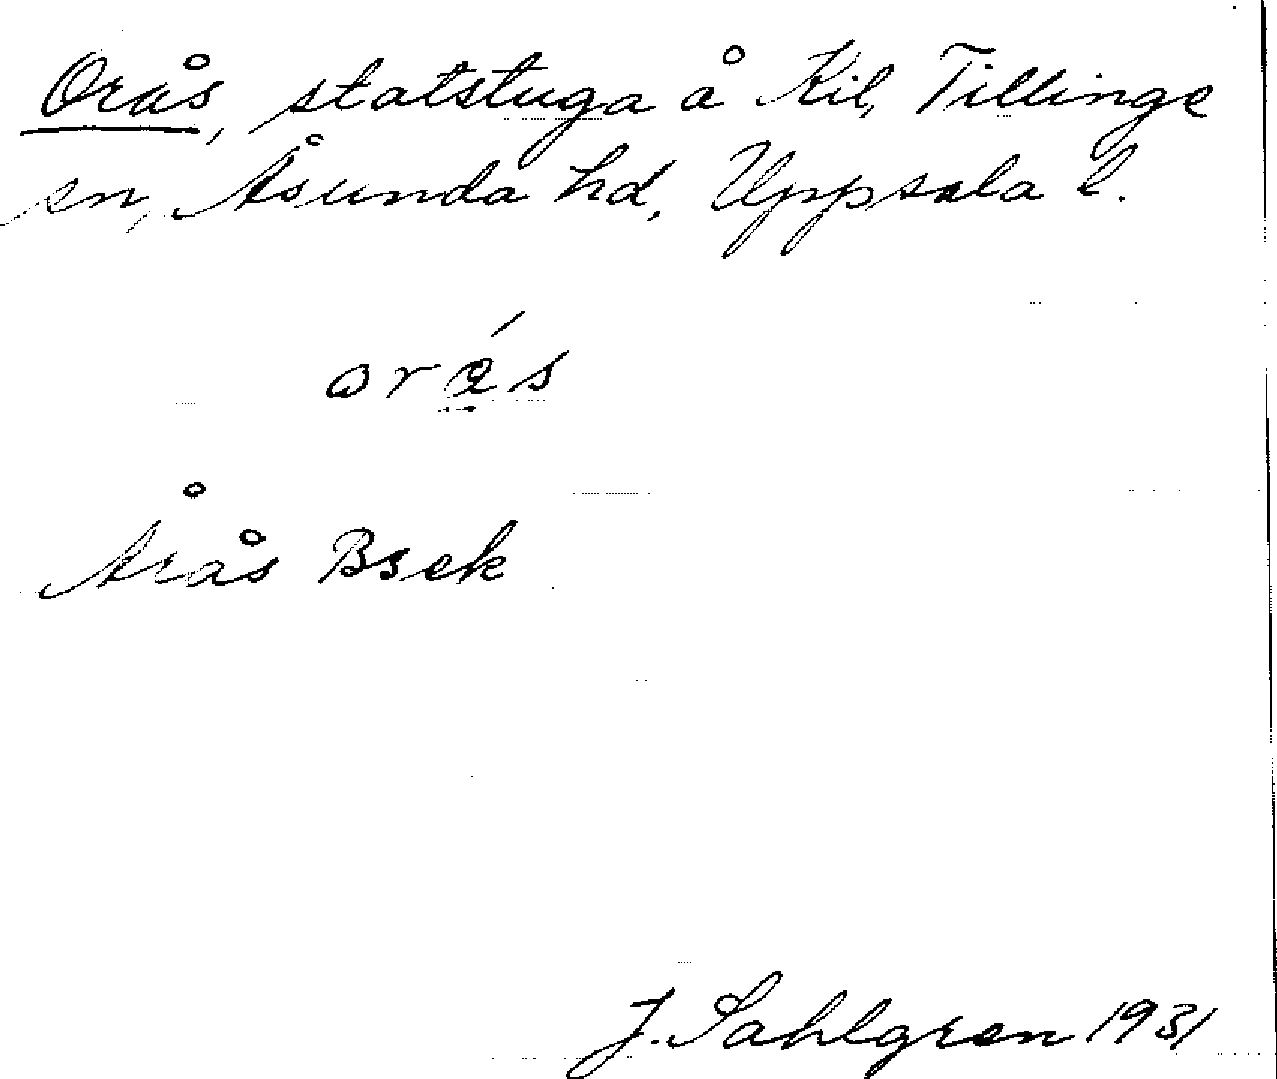 Orås, statstuga å Kil, Tillinge
sn, Åsunda hd, Uppsala l.
orás
Årås Bsek
J. Sahlgren 1931